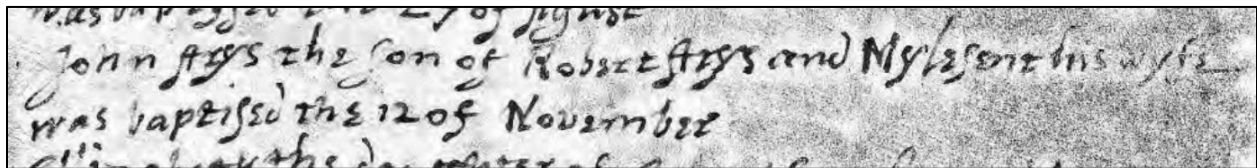 was baptised the 29 of August
John Ayys the son of Robert Ayys and Mylesent his wyfe
was baptised the 12 of November
the daughter of